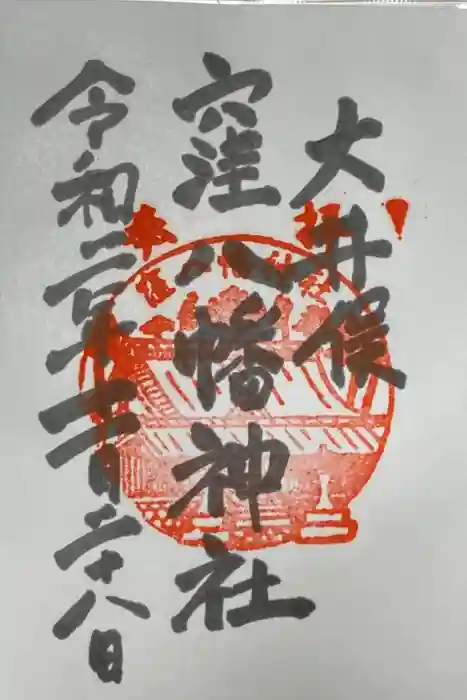 大井俣
窪八幡神社
令和二年十一月二十八日